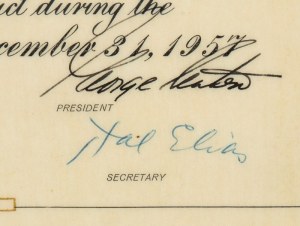 during the
cember 31, 1957
George Seaton
PRESIDENT
Hal Elias
SECRETARY